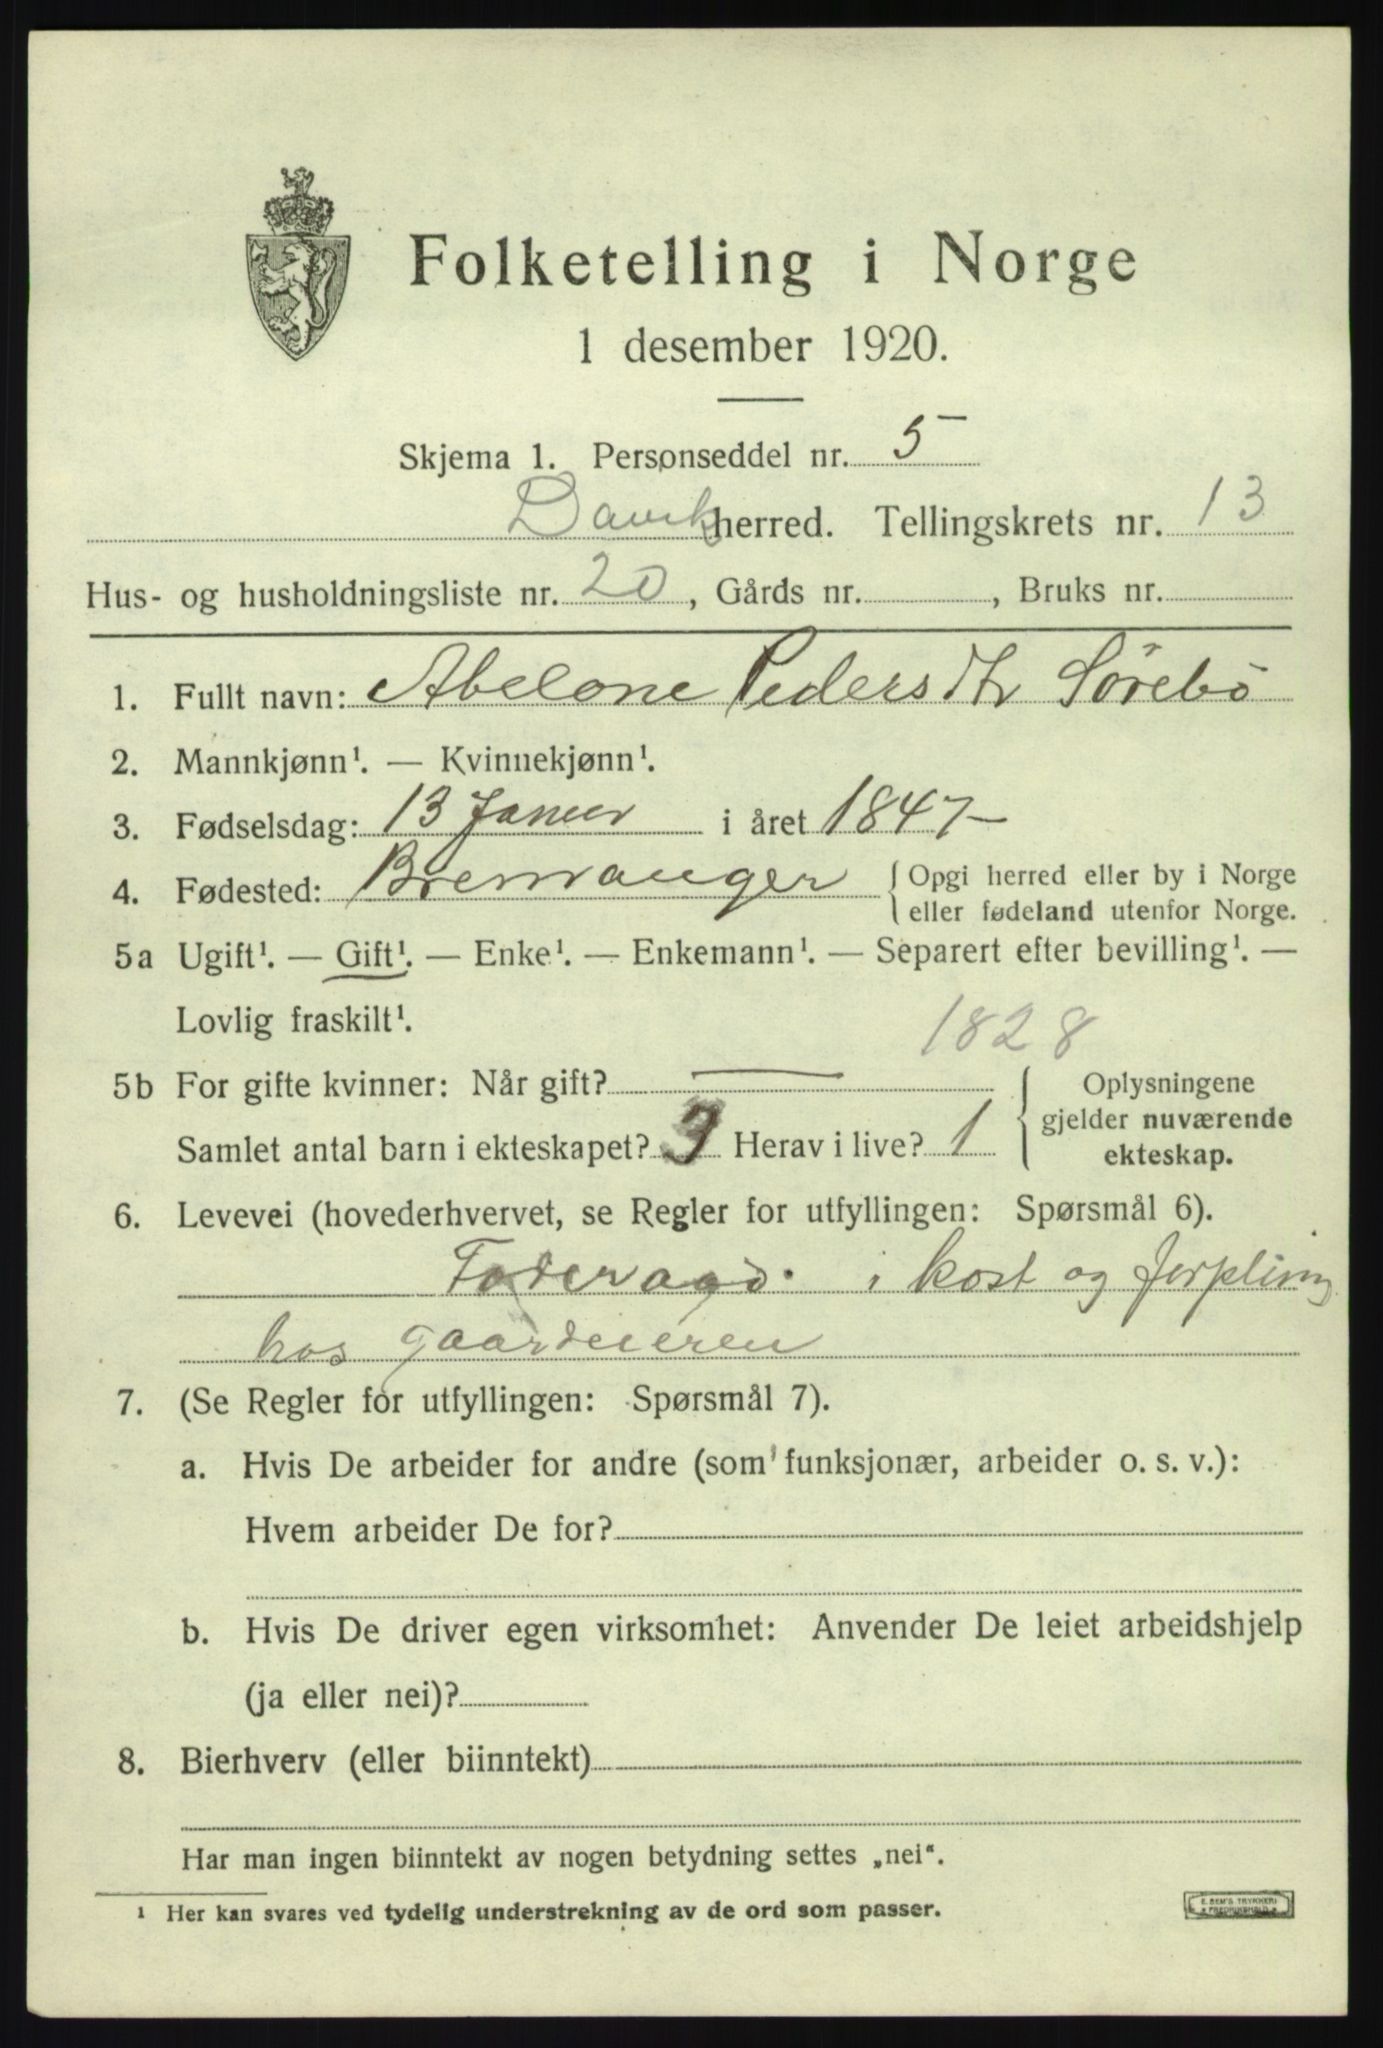 Folketelling i Norge
1 desember 1920.
Skjema 1. Personseddel nr. 5
Davik herred. Tellingskrets nr. 13
Hus- og husholdningsliste nr. 20, Gårds nr. , Bruks nr.
1. Fullt navn: Abelone Pedersdtr Sörebö
2. Mannkjønn¹. — Kvinnekjønn¹.
3. Fødselsdag: 13 Januer i året 1847
4. Fødested: Bremranger { Opgi herred eller by i Norge
eller fødeland utenfor Norge.
5a Ugift¹. — Gift¹. — Enke¹. — Enkemann¹. — Separert efter bevilling¹. —
Lovlig fraskilt¹.
1828
5b For gifte kvinner: Når gift? — { Oplysningene
gjelder nuværende
ekteskap.
Samlet antal barn i ekteskapet? 3 Herav i live? 1
6. Levevei (hovederhvervet, se Regler for utfyllingen: Spørsmål 6).
Foderaad. i kost og forpling
hos gaardeieren
7. (Se Regler for utfyllingen: Spørsmål 7).
a. Hvis De arbeider for andre (som funksjonær, arbeider o. s. v.):
Hvem arbeider De for?
b. Hvis De driver egen virksomhet: Anvender De leiet arbeidshjelp
(ja eller nei)?
8. Bierhverv (eller biinntekt)
Har man ingen biinntekt av nogen betydning settes „nei“.
¹ Her kan svares ved tydelig understrekning av de ord som passer.
E. SEM'S TRYKKERI
FREDRIKSHALD